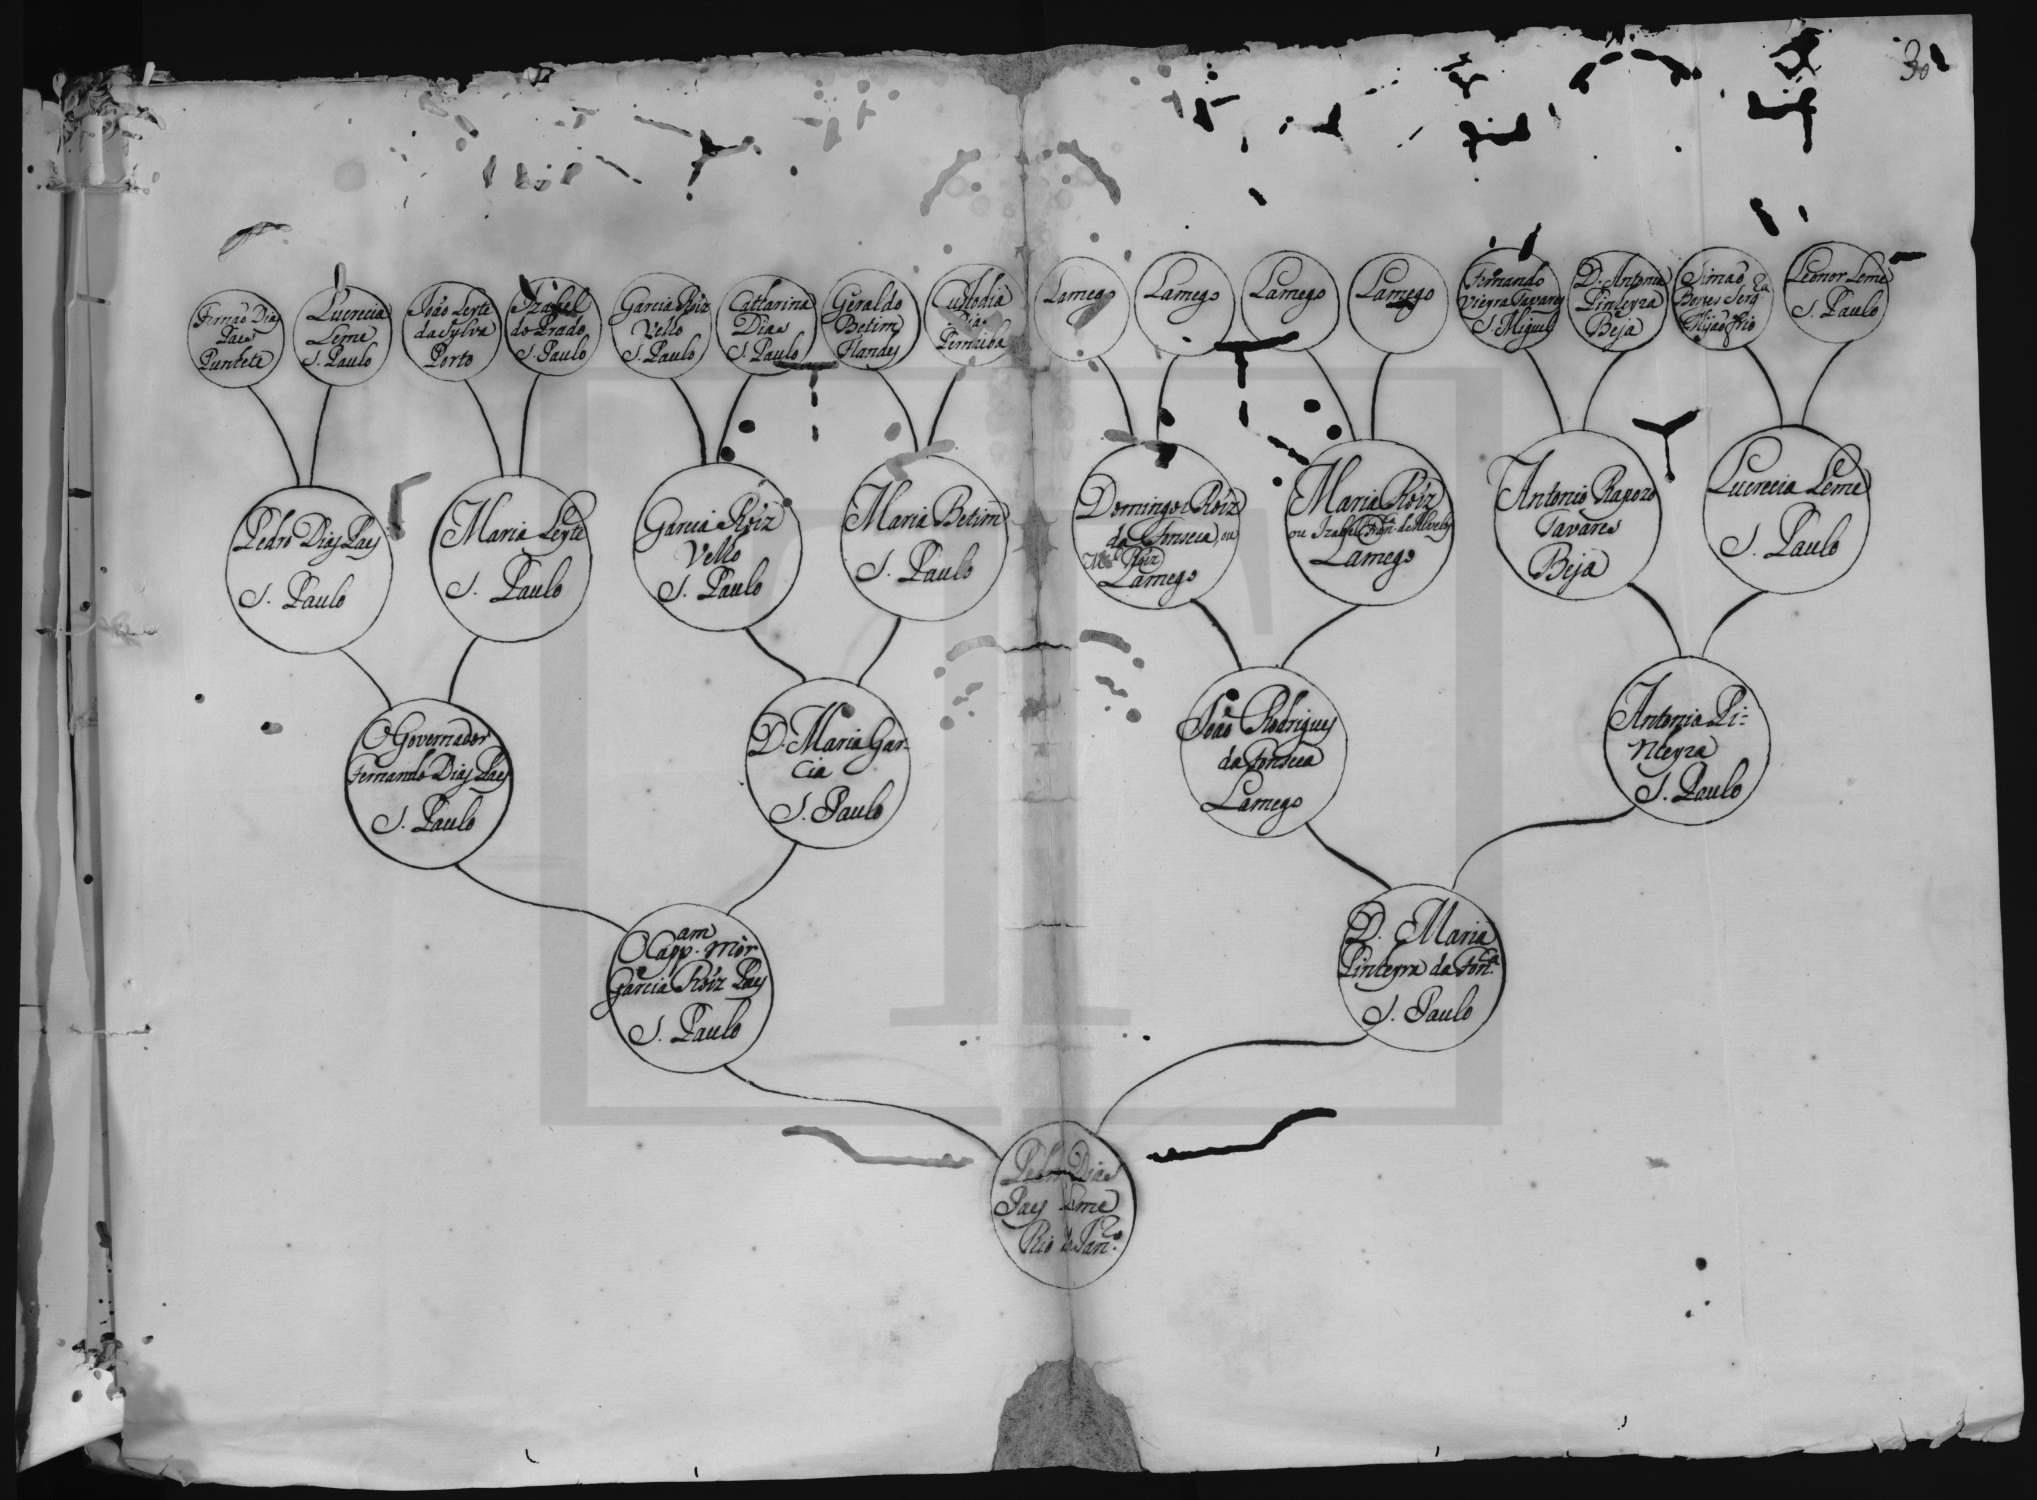 30
Fernaõ Dias
Paes
Puntete
Lucrecia
Leme
S. Paulo
João Leyte
da Sylva
Porto
Izabel
do Prado
S. Paulo
Garcia Roiz
Vello
S. Paulo
Catharina
Dias
S. Paulo
Geraldo
Betim
Flandes
Custodia
Dias
Parnaiba
Lamego
Lamego
Lamego
Lamego
Fernando
Vieyra Tavares
S. Miguel
D. Antonia
Pinteyra
Beja
Simaõ
Borges Serq.ra
Leonor Leme
S. Paulo
Pedro Dias Paes
S. Paulo
Maria Leyte
S. Paulo
Garcia Roiz
Vello
S. Paulo
Maria Betim
S. Paulo
Domingos Roiz
da Fonseca, ou
Mel. Roiz
Lamego
Maria Roiz
ou Izabel de Alvelos
Lamego
Antonio Rapozo
Tavares
Beja
Lucrecia Leme
S. Paulo
O Governador
Fernando Dias Paes
S. Paulo
D. Maria Gar-
cia
S. Paulo
João Rodrigues
da Fonseca
Lamego
Antonia Pi-
nteyra
S. Paulo
O Cappam. mòr
Garcia Roiz Paes
S. Paulo
D. Maria
Pinteyra da Fonca.
S. Paulo
Pedro Dias
Paes Leme
Rio de Janro.